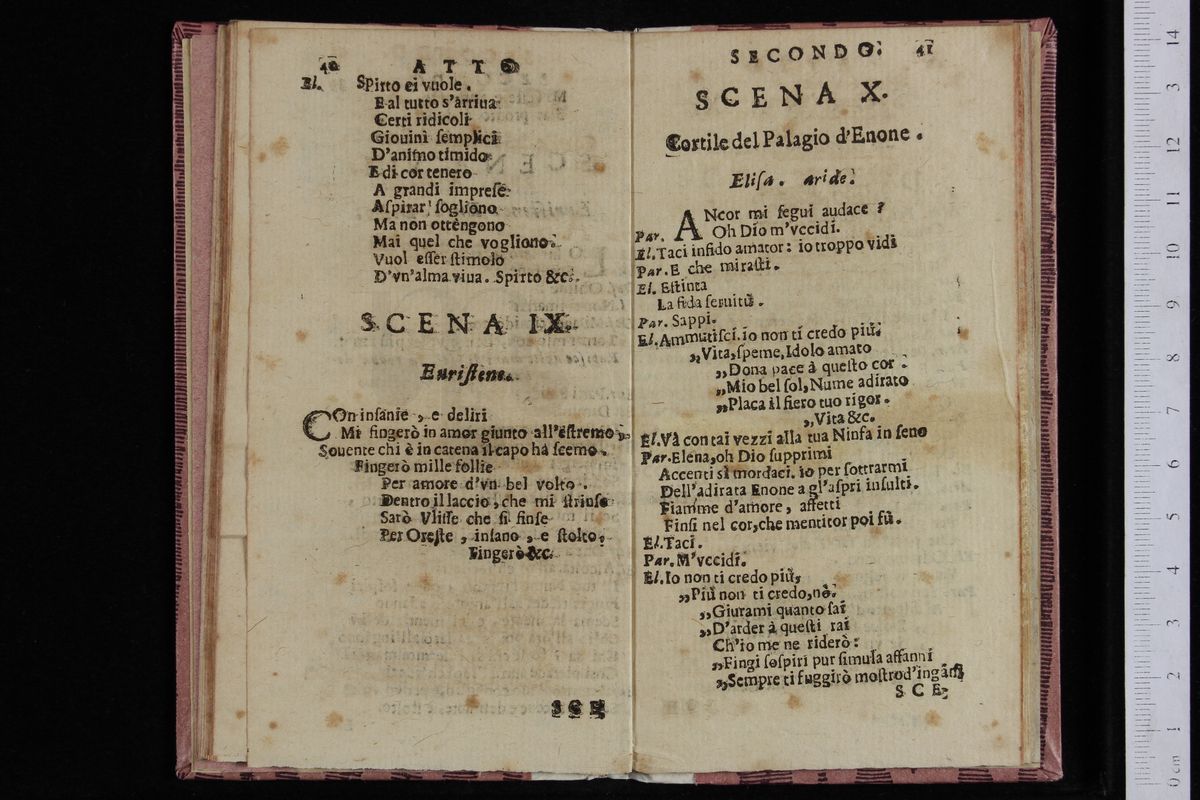 40 ATTO
El. Spirto ci vuole.
E al tutto s'arriua
Certi ridicoli
Giouini ſemplici
D'animo timido
E di cor tenero
A grandi impreſe
Aſpirar ſogliono
Ma non ottengono
Mai quel che vogliono.
Vuol eſſer ſtimolo
D'vn'alma viua. Spirto &c.
SCENA IX.
Euriſtene.
COn inſanie, e deliri
Mi fingerò in amor giunto all'eſtremo,
Souente chi è in catena il capo hà ſcemo.
Fingerò mille follie
Per amore d'vn bel volto.
Dentro il laccio, che mi ſtrinſe
Sarò Vliſſe che ſi finſe
Per Oreſte, inſano, e ſtolto,
Fingerò &c.
SCE
SECONDO. 41
SCENA X.
Cortile del Palagio d'Enone.
Eliſa. aride.
ANcor mi ſegui audace?
Par. Oh Dio m'vccidi.
El. Taci infido amator: io troppo vidi
Par. E che miraſti.
El. Eſtinta
La fida ſeruitù.
Par. Sappi.
El. Ammutiſci. io non ti credo più.
„Vita, ſpeme, Idolo amato
„Dona pace à queſto cor.
„Mio bel ſol, Nume adirato
„Placa il fiero tuo rigor.
„Vita &c.
El. Và con tai vezzi alla tua Ninfa in ſeno
Par. Elena, oh Dio ſupprimi
Accenti sì mordaci. io per ſottrarmi
Dell'adirata Enone a gl'aſpri inſulti.
Fiamme d'amore, affetti
Finſi nel cor, che mentitor poi fù.
El. Taci.
Par. M'vccidi.
El. Io non ti credo più,
„Più non ti credo, nò.
„Giurami quanto ſai
„D'arder à queſti rai
Ch'io me ne riderò:
„Fingi ſoſpiri pur ſimula affanni
„Sempre ti fuggirò moſtro d'inganni
SCE